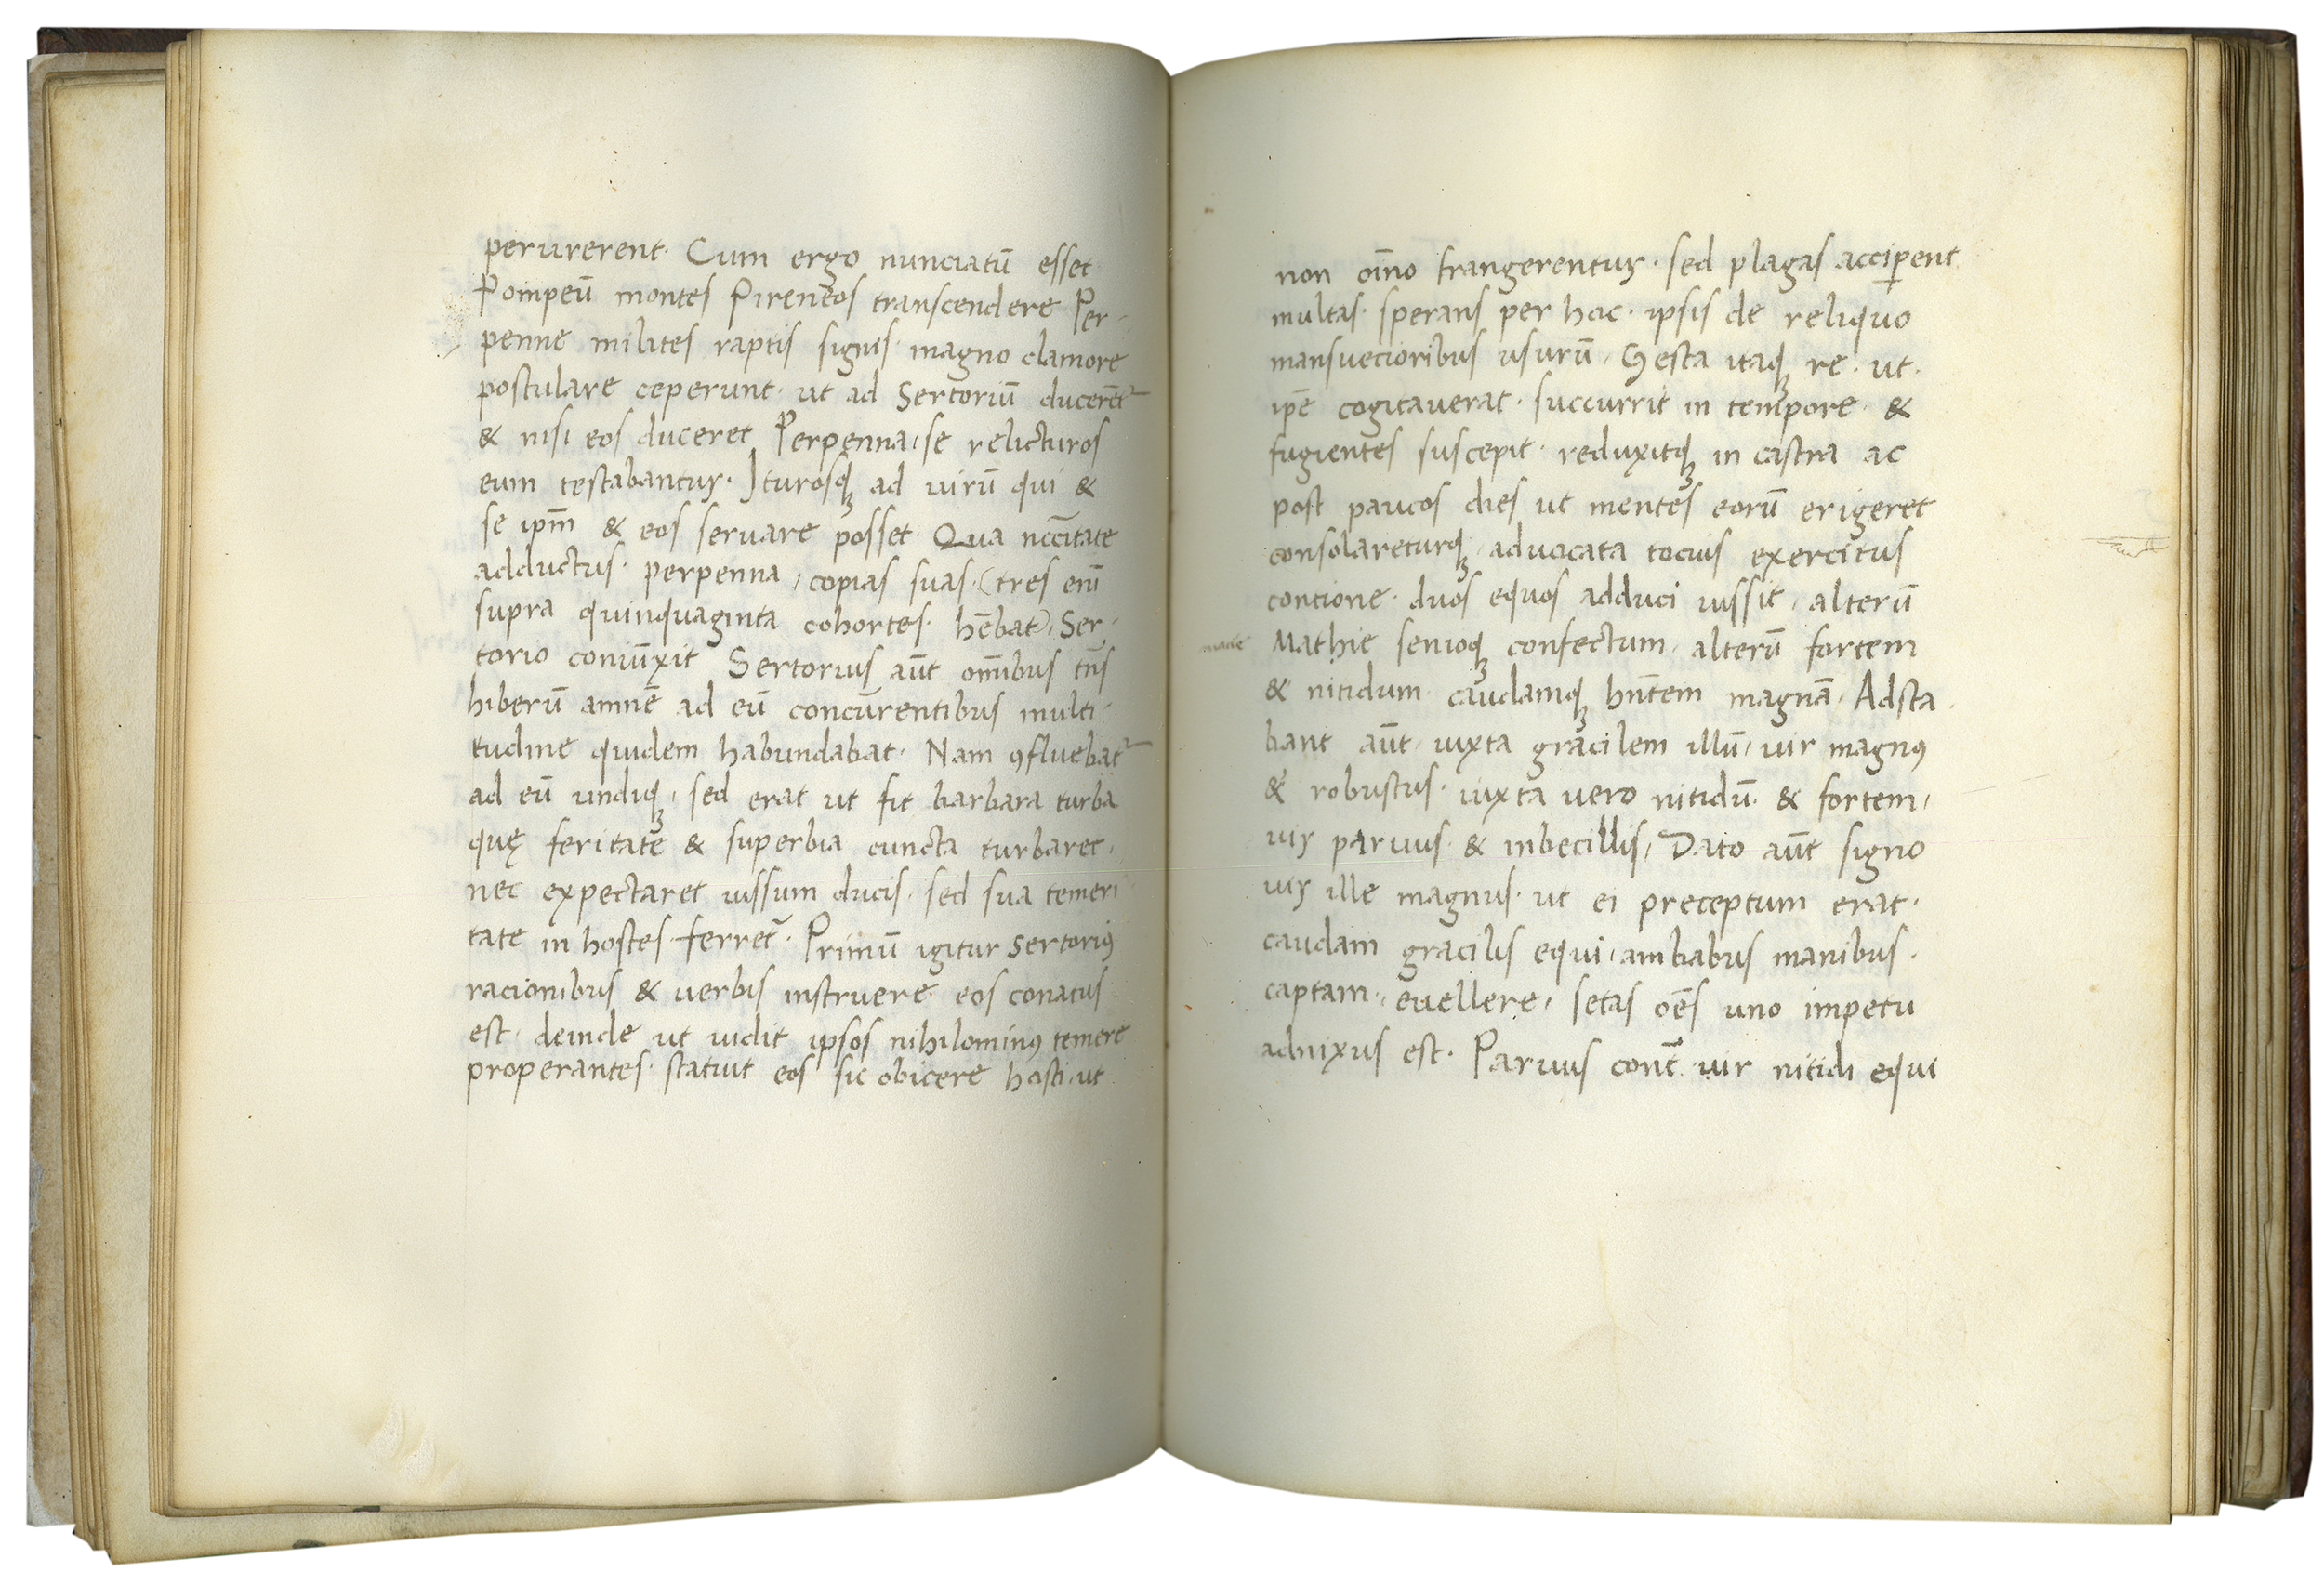 perurerent· Cum ergo nunciatū esset
Pompeū montes Pireneos transcendere Per-
penne milites raptis signis· magno clamore
postulare ceperunt· ut ad Sertoriū ducerēt᷑
& nisi eos duceret Perpenna, se relicturos
eum testabantur· Iturosq̨ ad uirū qui &
se ipm̄ & eos seruare posset· Qua nccītate
adductus· perpenna, copias suas· (tres enī
supra quinquaginta cohortes· hēbat), Ser-
torio coniūxit Sertorius aūt om̄ibus tn̄s
hiberū amnē ad eū concurrentibus multi-
tudine quidem habundabat· Nam ꝯfluebat᷑
ad eū undiq̨, sed erat ut fit barbara turba
quę feritate & superbia cuncta turbaret,
nec expectaret iussum ducis· sed sua temeri
tate in hostes ferret᷑· Primū igitur Sertoriꝰ
racionibus & uerbis instruere eos conatus
est· deinde ut uidit ipsos nihilominꝰ temere
properantes· statuit eos sic obicere hosti, ut
non oīno frangerentur· sed plagas acciꝑent
multas· sperans per hoc· ipsis de reliquo
mansuecioribus usurū, Gesta itaq̨ re· ut·
ip̄e cogitauerat· succurrit in tempore· &
fugientes suscepit· reduxitq̨ in castra ac
post paucos dies ut mentes eorū erigeret
consolareturq̨, aduocata tocius exercitus
concione· duos equos adduci iussit, alterū
Mathie senioq̨ confectum, alterū fortem
& nitidum· caudamq̨ hn̄tem magnā, Adsta
bant aūt, iuxta gracilem illū, uir magnꝰ
& robustus· iuxta uero nitidū· & fortem,
uir paruus· & inbecillis, Dato aūt signo
uir ille magnus· ut ei preceptum erat·
caudam gracilis equi, ambabus manibus·
captam, euellere, setas oēs uno impetu
adnixus est· Paruus cont̄ uir nitidi equi